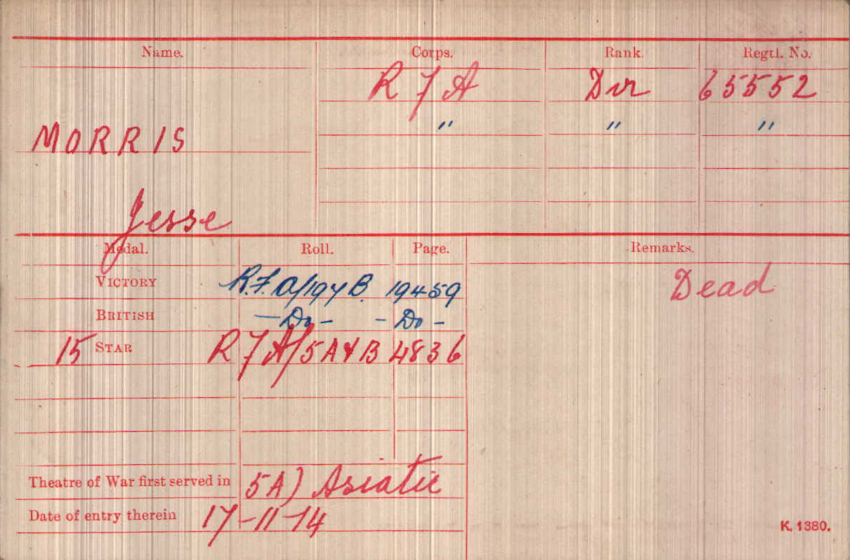 Name. Corps. Rank. Regtl. No.
R F A Dvr 65552
MORRIS " " "
Jesse
Medal. Roll. Page. Remarks.
VICTORY R.F.A/194B. 19459 Dead
BRITISH -Do- -Do-
15 STAR R F A/5A&B 4836
Theatre of War first served in 5A) Asiatic
Date of entry therein 17-11-14
K. 1380.